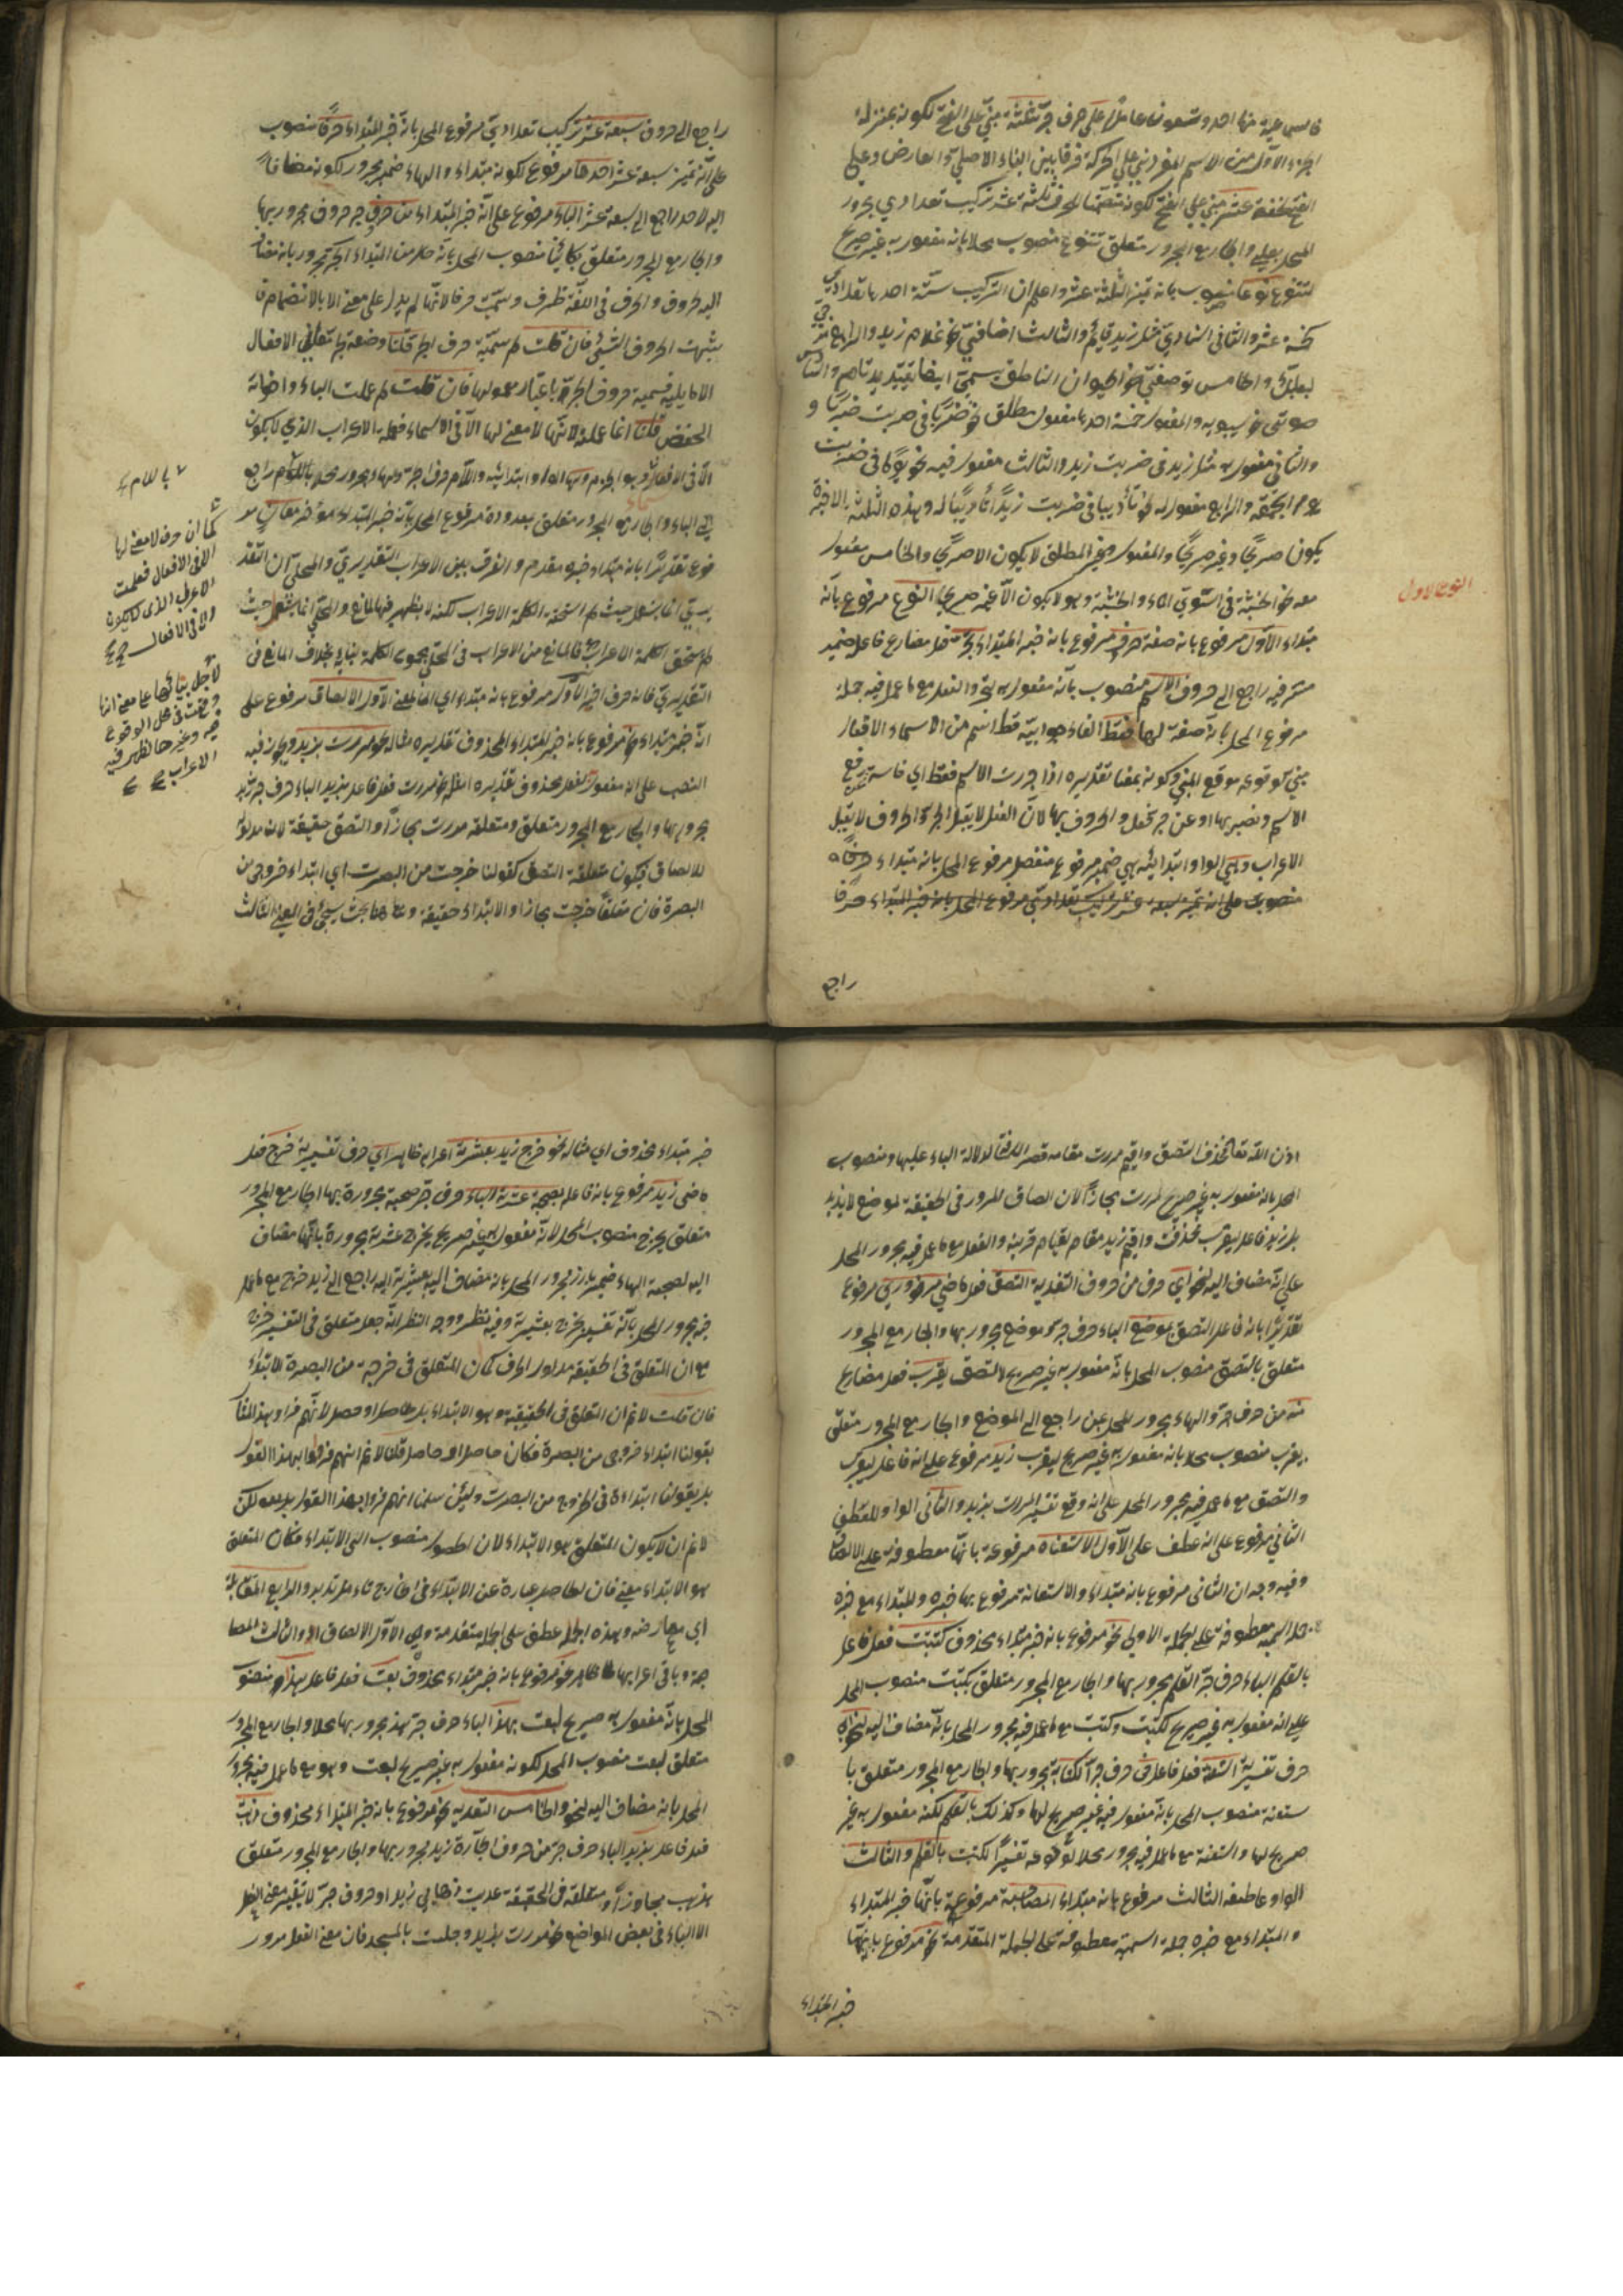 فالسماعية منها احد وتسعون عاملا على حرف جر ثلثة مبني على الفتح لكونه بمنزلة
الجزء الاول من الاسم المفرد بني على الحركة فرقا بين البناء الاصلي والعارض وعلى
الفتح لخفته عشر مبني على الفتح لكونه متضمنا للحرف ثلثة عشر تركيب تعدادي مجرور
المحل بعلى والجار مع المجرور متعلق تتنوع منصوب محلا بانه مفعول به غير صريح
لتتنوع نوعا منصوب بانه تميز الثلثة عشر واعلم ان التركيب ستة احدها تعدادي
خمسة عشر والثاني اسنادي مثل زيد قائم والثالث اضافي نحو غلام زيد والرابع مزجي
بعلبك والخامس توصيفي نحو الحيوان الناطق يسمى ايضا تقييديا تاما والسادس
صوتي نحو سيبويه والمفعول خمسة احدها مفعول مطلق نحو ضربا في ضربت ضربا و
والثاني مفعول به مثل زيد في ضربت زيدا والثالث مفعول فيه نحو يوما في ضربت
يوم الجمعة والرابع مفعول له نحو تأديبا في ضربت زيدا تأديبا له وهذه الثلثة الاخيرة
يكون صريحا وغير صريح والمفعول المطلق لا يكون الا صريحا والخامس مفعول
معه نحو الخشبة في استوى الماء والخشبة وهو لا يكون الا غير صريح النوع مرفوع بانه
النوع الاول
مبتداء الاول مرفوع بانه صفة حروف مرفوع بانه خبر المبتداء تجر فعل مضارع فاعله ضمير
مستتر فيه راجع الى حروف الاسم منصوب بانه مفعول به لتجر والفعل مع ما عمل فيه جملة
مرفوع المحل بانه صفة لها فقط الفاء جوابية قط اسم من الاسماء الافعال
مبني لوقوعه موقع المبني وكونه بمعنا تقديره اذا جررت الاسم فقط اي فانته عن رفع
الاسم ونصبه بها او عن جر الفعل والحروف بها لان الفعل لا يقبل الجر والحروف لا يقبل
الاعراب وهي الواو ابتدائية هي ضمير مرفوع منفصل مرفوع المحل بانه مبتداء حرفا
منصوب على انه تميز سبعة عشر تركيب تعدادي مرفوع المحل بانه خبر المبتداء حرفا
راجع
راجع الى حروف سبعة عشر تركيب تعدادي مرفوع المحل بانه خبر المبتداء حرفا منصوب
على انه تميز سبعة عشر احدها مرفوع لكونه مبتداء والهاء ضمير مجرور لكونه مضافا
اليه لاحد راجع الى سبعة عشر الباء مرفوع على انه خبر المبتداء من حرف جر حروف مجرور بها
والجار مع المجرور متعلق بكائنا منصوب المحل بانه حال من المبتداء الجر مجرور بانه مضاف
اليه لحروف والحرف في اللغة طرف وسميت حرفا لانها لم يدل على معنى الا بالانضمام فا
شبهت الحروف الشيء فان قلت لم سمية حرف الجر قلنا وضعه لجر معاني الافعال
الا ما يليه فسمية حروف الجر باعتبار معمولها فان قلت لم عملت الباء واخواته
الخفض قلنا انما عمله لانها لا معنى لها الا في الاسماء فعمله الاعراب الذي لا يكون
الا في الافعال وهو الجزم ولها الواو ابتدائية واللام حرف الجر والهاء مجرور محلا باللام راجع
الى الباء والجار مع المجرور متعلق بعدوده مرفوع المحل بانه خبر المبتداء مؤخر معان مر
فوع تقديرا بانه مبتداء خبره مقدم والفرق بين الاعراب التقديري والمحلي ان التقد
يري انما يستعمل حيث لم استحقه الكلمة الاعراب لكنه لا يظهر فيها لمانع والمحلي انما يستعمل حيث
لم يستحق الكلمة الاعراب فالمانع من الاعراب في المحلي مجموع الكلمة لبنائه بخلاف المانع في
التقديري فانه حرف اخير الاول مرفوع بانه مبتداء اي المعنى الاول الالصاق مرفوع على
انه خبر مبتداء نحو مرفوع بانه خبر للمبتداء المحذوف تقديره مثاله نحو مررت بزيد ويجوز فيه
النصب على انه مفعول لفعل محذوف تقديره امثل نحو مررت فعل فاعل بزيد الباء حرف جر زيد
مجرور بها والجار مع المجرور متعلق ومتعلقه مررت مجازا والتصق حقيقة لان مدلوله
للالصاق فيكون متعلقه التصق كقولنا خرجت من البصرت اي ابتداء خروجي من
البصرة فان متعلقها خرجت مجازا والابتداء حقيقة وههنا بحث سيجيئ في الثالث
باللام
كما ان حرف لا معنى لها
الا في الافعال فعملت
الاعراب الذي لا يكون
الا في الافعال
لاجل بنائها على معنى انها
وقعت في محل الوقوع
فيه وغيرها لظهر فيه
الاعراب
اذن الله تعا فحذف التصق واقيم مررت مقامه قصر المسافة لدلالة الباء عليها ومنصوب
المحل بانه مفعول به غير صريح لمررت مجازا لان الصاق المرور في الحقيقة لموضع لا بزيد
بل زيد فاعل يقرب فحذف واقيم زيد مقام بقيام قرينة والفعل مع ما عمل فيه مجرور المحل
على انه مضاف اليه لنحو اي حرف من حروف التفسرية التصق فعل ماضي مروري مرفوع
تقديرا بانه فاعل التصق بموضع الباء حرف جر موضع مجرور بها والجار مع المجرور
متعلق بالتصق منصوب المحل بانه مفعول به غير صريح لالتصق يقرب فعل مضارع
منه من حرف جر والهاء مجرور المحل بمن راجع الى الموضع والجار مع المجرور متعلق
بيقرب منصوب محلا بانه مفعول به غير صريح ليقرب زيد مرفوع على انه فاعل ليقرب
والتصق مع ما عمل فيه مجرور المحل على انه وقع تفسير لمررت بزيد والثاني الواو للعطف
الثاني مرفوع على انه عطف على الاول الاستعانة مرفوعة بانها معطوفة على الالصاق
وفيه وجه ان الثاني مرفوع بانه مبتداء والاستعانة مرفوع بها خبره والمبتداء مع خبره
جملة اسمية معطوفة على لجملة الاولى نحو مرفوع بانه خبر مبتداء محذوف كتبت فعل فاعل
بالقلم الباء حرف جر القلم مجرور بها والجار مع المجرور متعلق بكتبت منصوب المحل
على انه مفعول به غير صريح لكتبت وكتبت مع ما عمل فيه مجرور المحل بانه مضاف اليه لنحو اي
حرف تفسيرية استعنة فعل فاعل في حرف جر الكتابة مجرور بها والجار مع المجرور متعلق با
ستعنة منصوب المحل بانه مفعول فيه غير صريح لها وكذلك بالقلم لكنه مفعول به غير
صريح لها واستعنة مع ما عمل فيه مجرور محلا لوقوعه تفسيرا لكتبت بالقلم والثالث
الواو عاطفة الثالث مرفوع بانه مبتداء المصاحبة مرفوعة بانها خبر المبتداء
والمبتداء مع خبره جملة اسمية معطوفة على لجملة المتقدمة نحو مرفوع بانها
خبر المبتداء
خبر مبتداء محذوف اي مثاله نحو خرج زيد بعشيرته اعرابه ظاهر اي حرف تفسيرية خرج فعل
ماضي زيد مرفوع بانه فاعله بصحبة عشيرته الباء حرف جر صحبة مجرورة بها الجار مع المجرور
متعلق بخرج منصوب المحل لانه مفعول به غير صريح لخرج عشيرته مجرورة بانها مضاف
اليه لصحبة الهاء ضمير بارز مجرور المحل بانه مضاف اليه لعشيرته اليه راجع الى زيد خرج مع ما عمل
فيه مجرور المحل بانه تفسير لخرج بعشيرته وفيه نظر ووجه النظر انه جعل متعلق في التفسير خرج
مع ان المتعلق في الحقيقة مدلول الحرف كما ان المتعلق في خرجت من البصرة الابتداء
فان قلت لا نم ان المتعلق في الحقيقة هو الابتداء بل حاصل او حصل لانهم فسروا بهذا المثال
بقولنا ابتداء خروجي من البصرة فكان حاصل او حاصل قلنا لا نم انهم فسروا بهذا القول
بل بقولنا ابتداء في الخروج من البصرت ولئن سلمنا انهم فسروا بهذا القول لكن
لا نم ان لا يكون المتعلق هو الابتداء لان الحصول منصوب الى الابتداء فكان المتعلق
هو الابتداء معنى فان الحاصل عبارة عن الابتداء في الخارج والرابع المقابلة
اي معارضة وهذه الجملة عطف على الجملة متقدمة وهي الاول الالصاق او الثالث المصا
حبة وباقي اعرابها ظاهر نحو مرفوع بانه خبر مبتداء محذوف بعت فعل فاعل هذا منصوب
المحل بانه مفعول به صريح لبعت بهذا الباء حرف جر هذ مجرور بها محلا والجار مع المجرور
متعلق لبعت منصوب المحل لكونه مفعول به غير صريح لبعت وهو مع ما عمل فيه مجرور
المحل بانه مضاف اليه لنحو والخامس التعدية نحو مرفوع بانه خبر المبتداء محذوف ذهبت
فعل فاعل بزيد الباء حرف جر من حروف الجارة زيد مجرور بها والجار مع المجرور متعلق
بذهب مجازا ومتعلقه في الحقيقة عديت ذهابي زيدا وحروف جر لا يتغير معنى الفعل
الا الباء في بعض المواضع نحو مررت بزيد وجلست بالمسجد فان معنى الفعل مرور